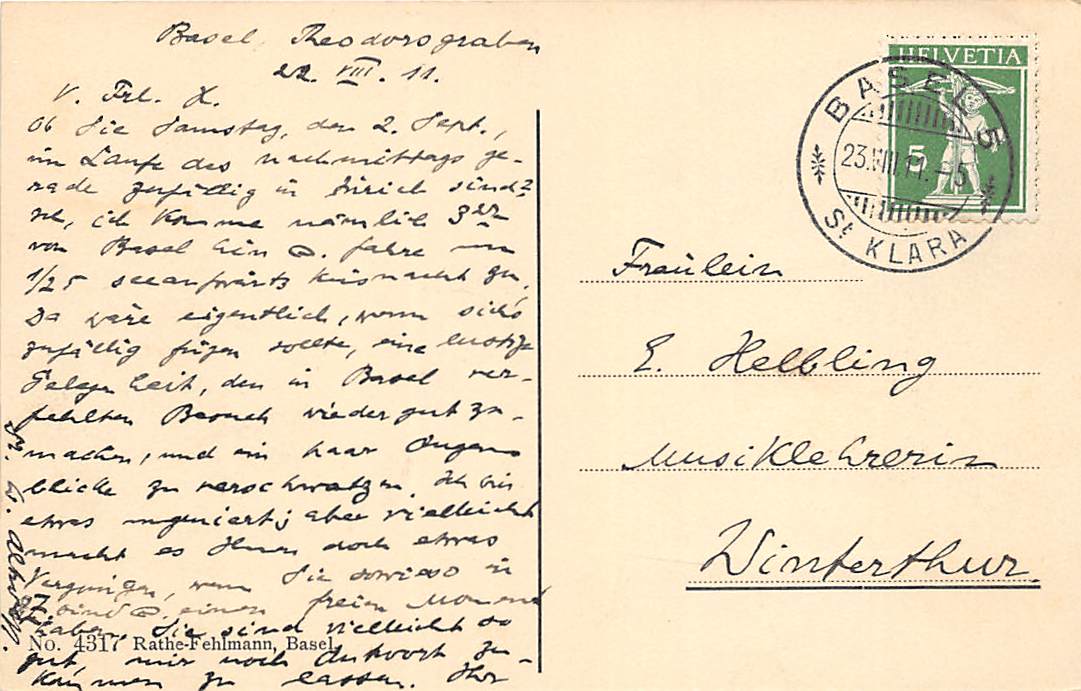 Basel, Theodorsgraben
22. VIII. 11.
V. Frl. H.
Ob Sie Samstag, den 2. Sept.,
im Laufe des nachmittags ge-
rade zufällig in Zürich sind?
ich komme nämlich 3
von Basel hin fahre
1/25 seeaufwärts Küsnacht zu.
Da wäre eigentlich, wenn sichs
zufällig fügen sollte, eine lustige
Gelegenheit, den in Basel ver-
fehlten Besuch wieder gut zu
machen, und ein paar Augen
blicke zu verschwatzen. Ich bin
etwas ungeniert; aber vielleicht
macht es Ihnen doch etwas
Vergnügen, wenn Sie sowieso in
Z sind einen freien Moment
haben. Sie sind vielleicht so
gut, mir noch Antwort zu-
kommen zu lassen. Ihr
No. 4317 Rathe-Fehlmann, Basel.
HELVETIA
5
BASEL 5
23.VIII.11.-5
St. KLARA
Fraülein
E. Helbling
Musiklehrerin
Winterthur.